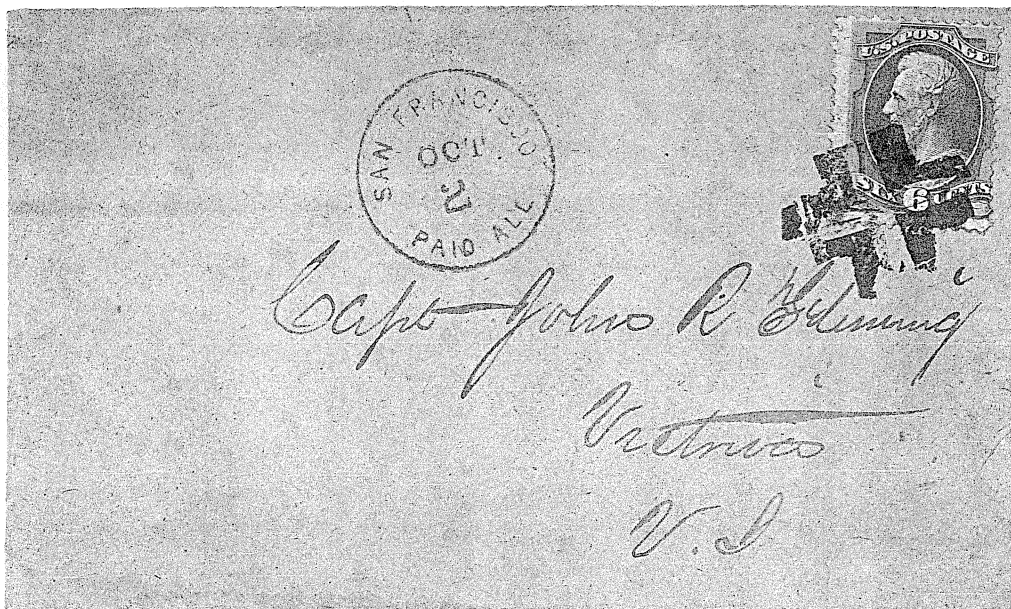 U.S. POSTAGE
SIX 6 CENTS
SAN FRANCISCO
OCT
2
PAID ALL
Capt John R
Victoria
V. I